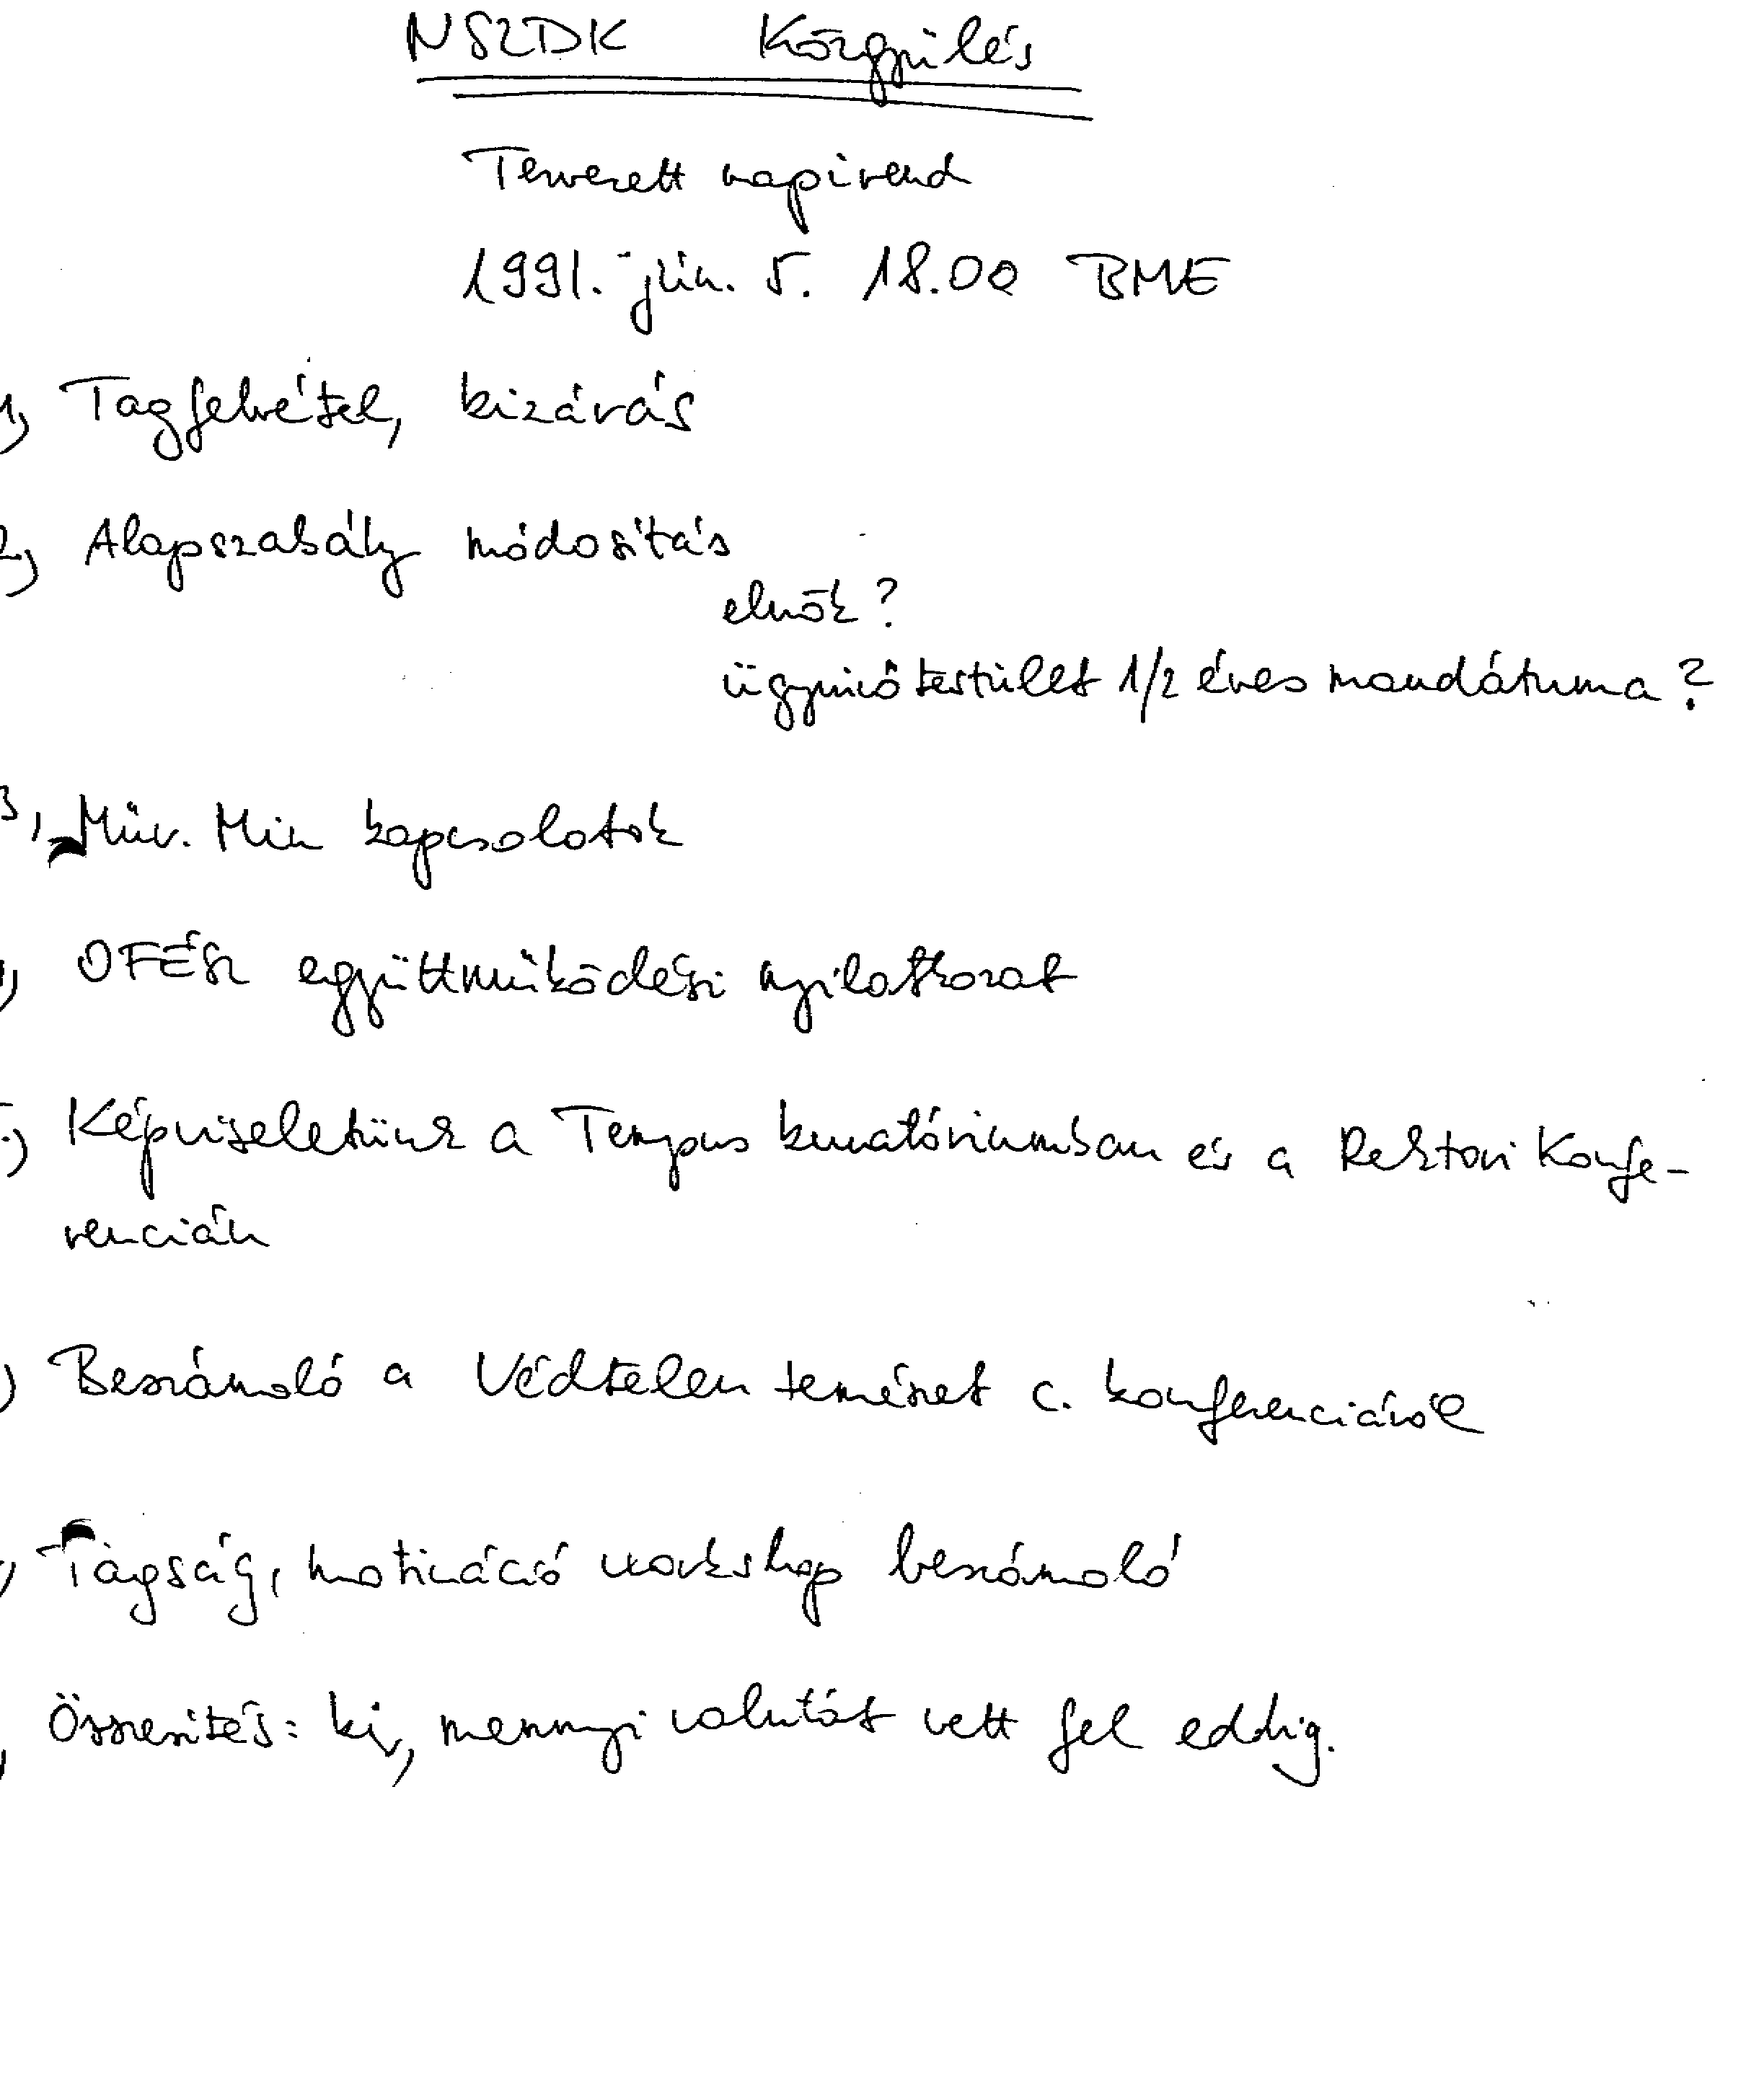 NSZDK Közgyülés
Tervezett napirend
1991. jún. 5. 18.00 BME
1, Tagfelvétel, kizárás
2, Alapszabály módosítás
elnök?
ügyvivő testület 1/2 éves mandátuma?
3, Müv. Min kapcsolatok
, OFÉSz együttmüködési nyilatkozat
.) Képviseletünk a Tempus kuratóriumban és a Rektori Konfe-
rencián
) Beszámoló a Védtelen természet c. konferenciáról
, Tagság, motiváció workshop beszámoló
, Összesítés: ki, mennyi valutát vett fel eddig.